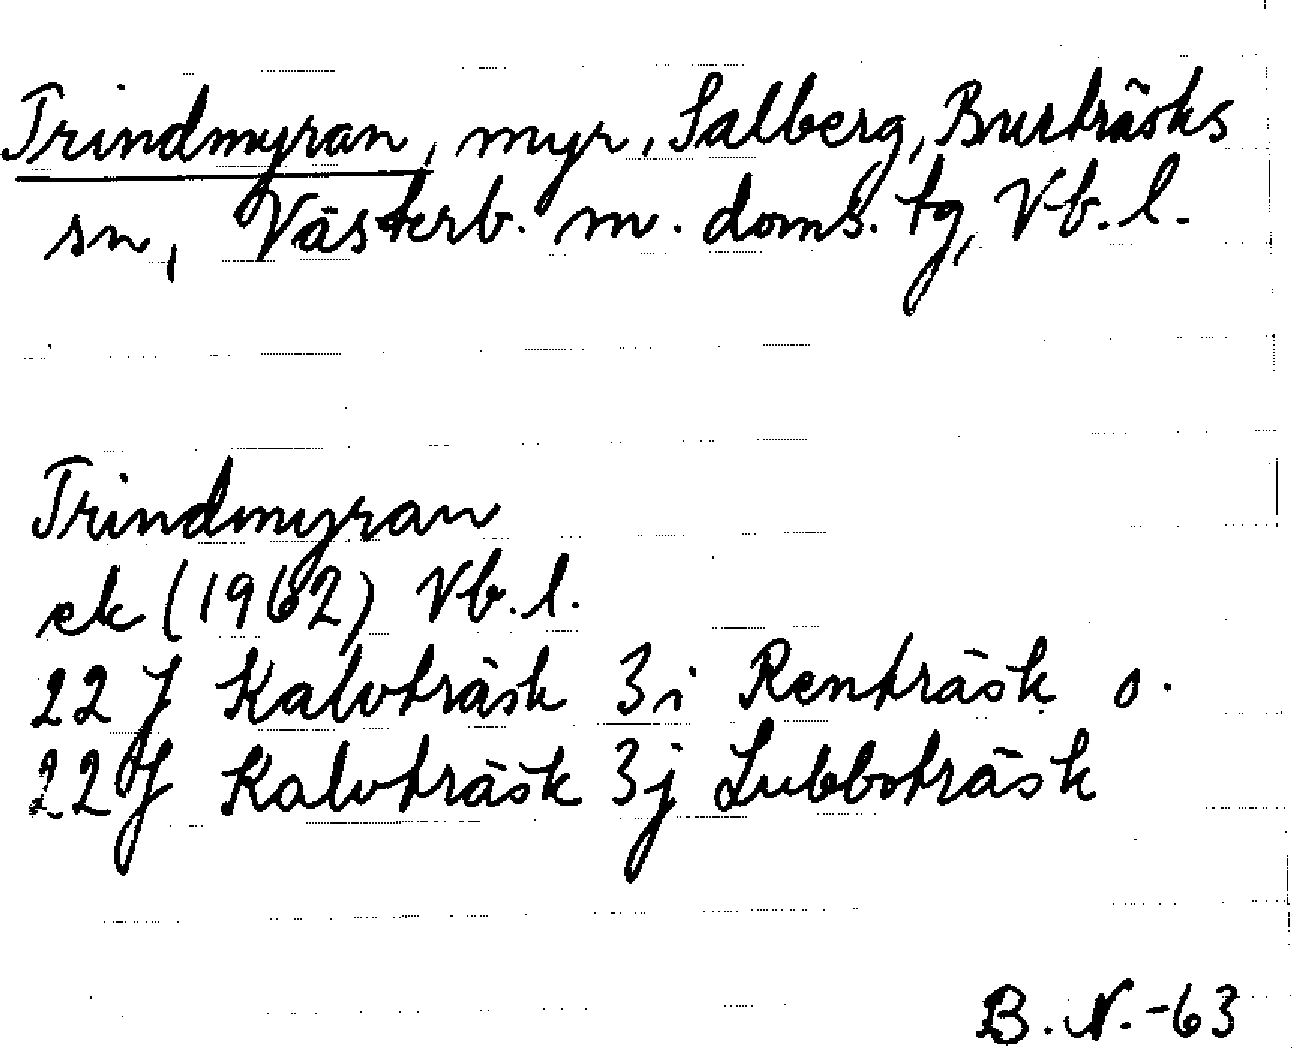 Trindmyran, myr, Salberg, Burträsks
sn, Västerb. m. doms. tg, Vb. l.
Trindmyran
ek (1962) Vb. l.
22 J Kalvträsk 3i Renträsk o.
22 J Kalvträsk 3j Lubboträsk
B. N. -63